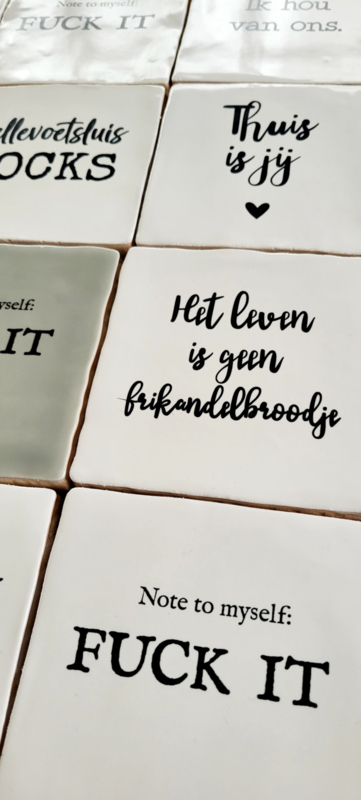 Note to myself:
FUCK IT
Ik hou
van ons.
llevoetsluis
OCKS
Thuis
is jij
yself:
IT
Het leven
is geen
frikandelbroodje
Note to myself:
FUCK IT